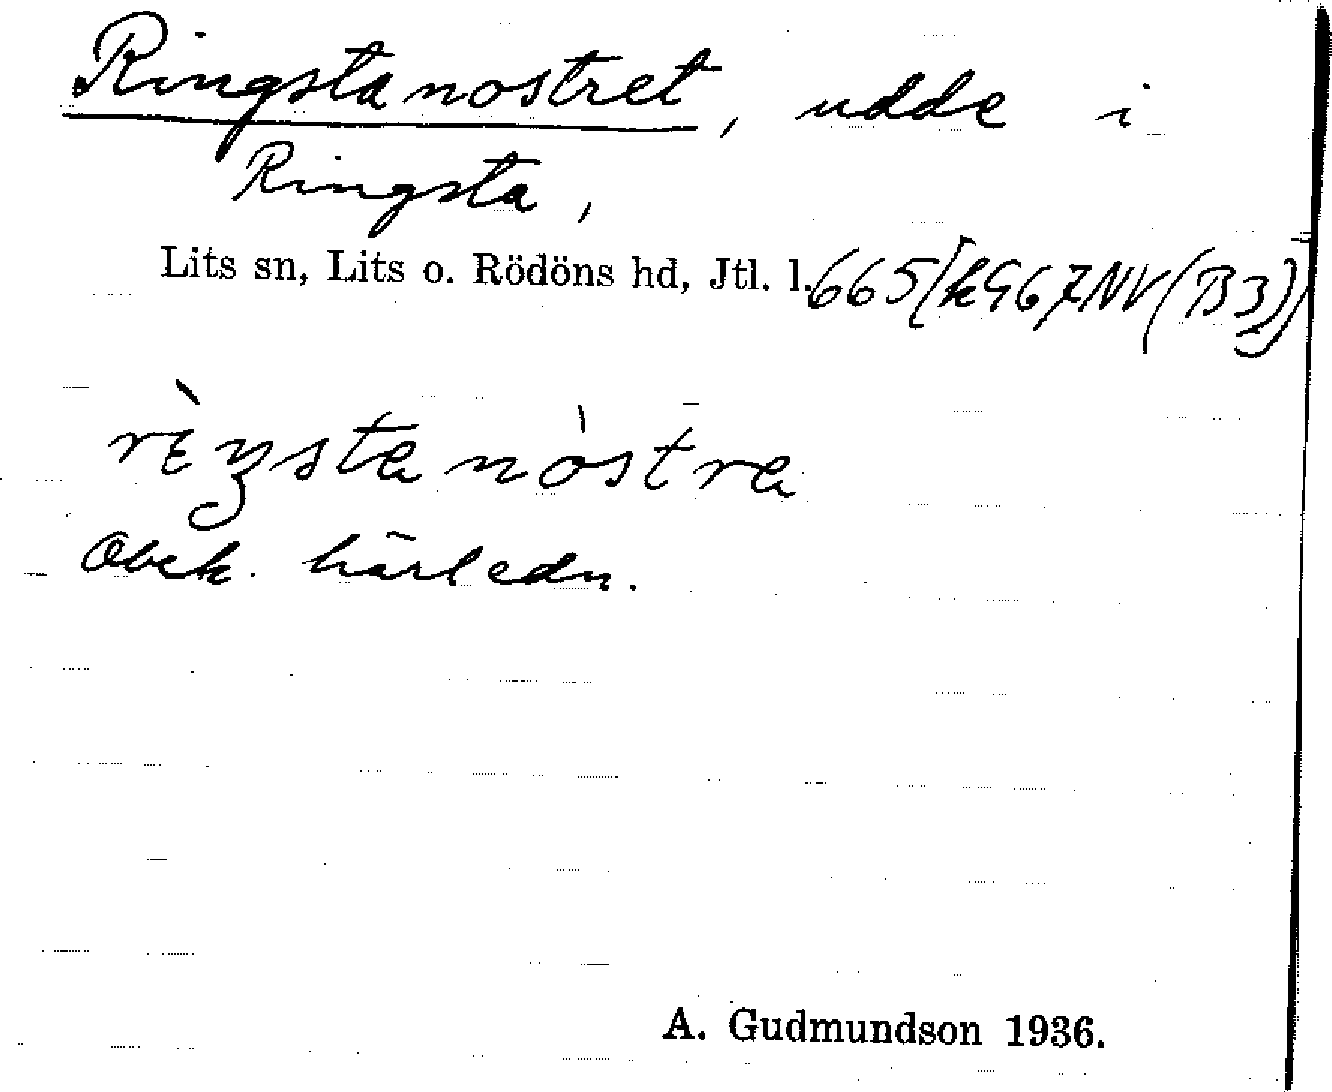 Ringstanostret, udde i
Ringsta,
Lits sn, Lits o. Rödöns hd, Jtl. l.
rèŋsta nòstra
Obek. härledn.
A. Gudmundson 1936.